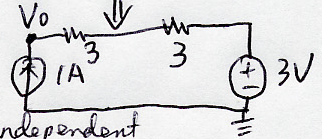 Vo
3
3
1A
+
-
3V
ndependent